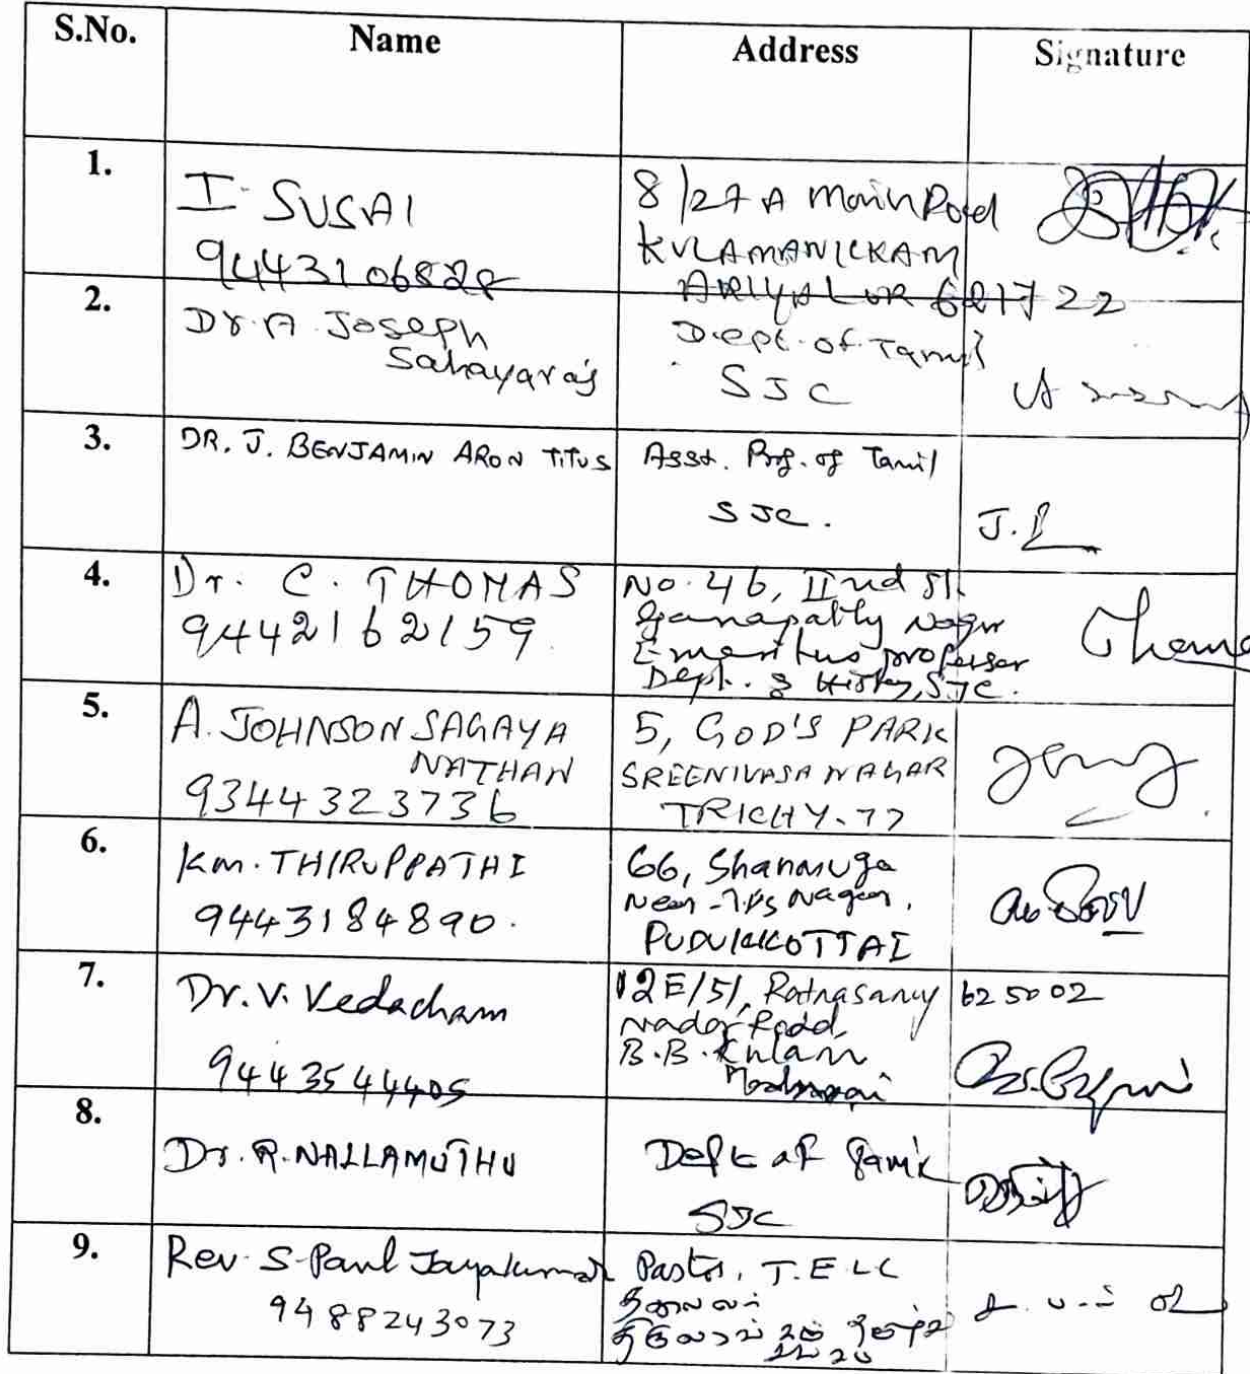 S.No. Name Address Signature
1.
I. SUSAI
9443106828
8/27 A Main Road
KULAMANICKAM
ARIYALUR 621722
2.
Dr. A. Joseph
Sahayaraj
Dept. of Tamil
SJC
3.
DR. J. BENJAMIN ARON TITUS
Asst. Prof. of Tamil
SJC.
J.
4.
Dr. C. THOMAS
9442162159.
No. 46, IInd St.
Ganapathy Nagar
Emeritus professor
Dept. of History, SJC.
Thomas
5.
A. JOHNSON SAGAYA
NATHAN
9344323736
5, GOD'S PARK
SREENIVASA NAGAR
TRICHY-77
6.
Km. THIRUPPATHI
9443184890.
66, Shanmuga
Near Nagar,
PUDUKKOTTAI
7.
Dr. V. Vedacham
9443544405
12E/51, Ratnasamy
Nadar Road,
B.B. Kulam
Madurai
625002
8.
Dr. R. NALLAMUTHU
Dept of Tamil
SJC
9.
Rev. S. Paul Jayakumar
9488243073
Pastor, T.E.L.C